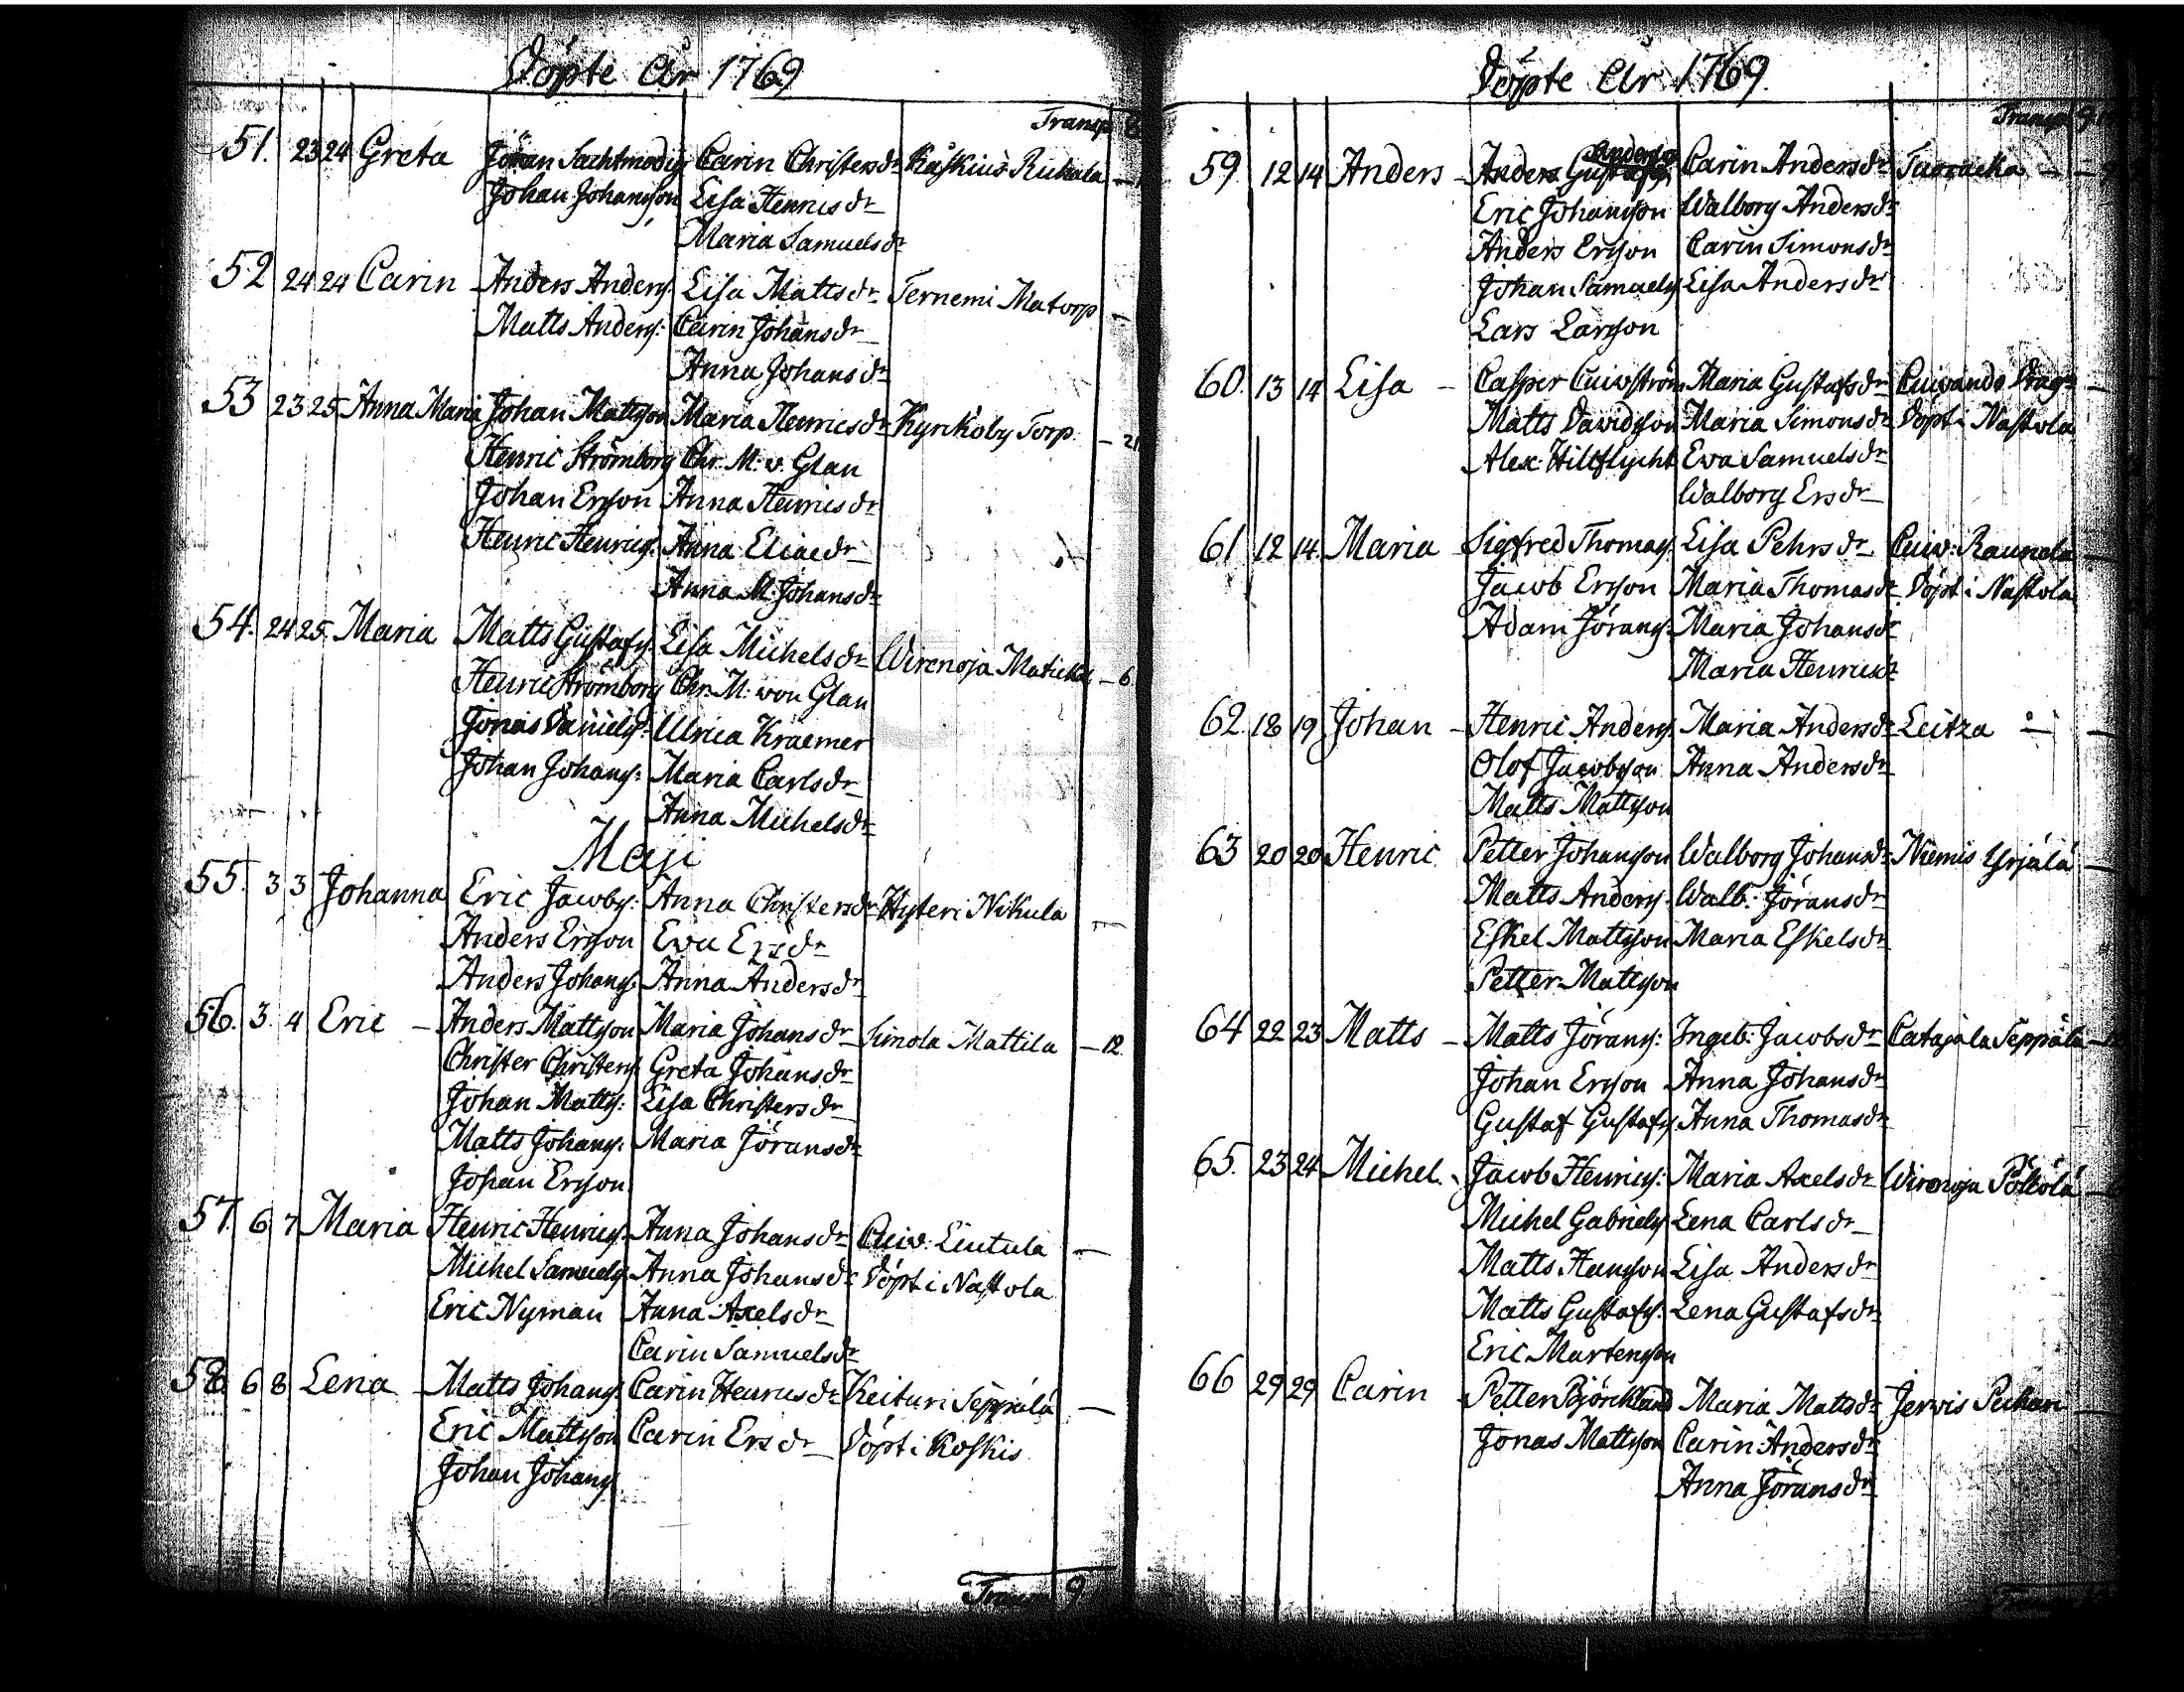 Döpte År 1769
Transp
51. 23 24 Greta Jöran Sachtmodig Carin Christersdr Kaskius Rukala
Johan Johansson Lisa Henricsdr
Maria Samuelsdr
52 24 24 Carin Anders Anders. Lisa Mattsdr Ternemi Matorp
Matts Anders: Carin Johansdr
Anna Johansdr
53 23 25 Anna Maria Johan Mattsson Maria Henricsdr Kyrkoby Torp 21
Henric Strömborg Chr. M. v. Glan
Johan Ersson Anna Henricsdr
Henric Henrics. Anna Eliaedr
Anna M. Johansdr
54. 24 25. Maria Matts Gustafs. Lisa Michelsdr Wirenoja Maticka 6
Henric Strömborg Chr. M: von Glan
Jonas Daniels: Ulrica Kraemer
Johan Johans: Maria Carlsdr
Anna Michelsdr
Maji
55. 3 3 Johanna Eric Jacobs: Anna Christersdr Hyteri Nikula
Anders Ersson Eva Ersdr
Anders Johans. Anna Andersdr
56. 3. 4 Eric Anders Mattsson Maria Johansdr Simola Mattila 12.
Christer Christers. Greta Johansdr
Johan Matts: Lisa Christersdr
Matts Johans: Maria Jöransdr
Johan Ersson
57. 6 7 Maria Henric Henrics. Anna Johansdr Cuiv: Liutula
Michel Samuels. Anna Johansdr Döpt i Nastola
Eric Nyman Anna Axelsdr
Carin Samuelsdr
58. 6 8 Lena Matts Johans. Carin Henricsdr Keituri Seppälä
Eric Mattsson Carin Ersdr Döpt i Koskis
Johan Johans
Transp 9.
Döpte År 1769.
Transp 9
59. 12 14 Anders Anders Anderss. Carin Andersdr
Eric Johansson Walborg Andersdr
Anders Ersson Carin Simonsdr
Johan Samuels. Lisa Andersdr
Lars Larsson
60. 13 14 Lisa Casper Cuiwström Maria Gustafsdr Cuivando Drag:
Matts Davidsson Maria Simonsdr Döpt i Nastola
Alex: Hiltflycht Ewa Samuelsdr
Walborg Ersdr
61 12 14. Maria Sigfred Thomas. Lisa Pehrsdr Cuiv: Raunela
Jacob Ersson Maria Thomasdr Döpt i Nastola
Adam Jörans: Maria Johansdr
Maria Henricsdr
62. 18 19 Johan Henric Anders. Maria Andersdr Leitza
Olof Jacobsson Anna Andersdr
Matts Mattsson
63 20 20 Henric Petter Johansson Walborg Johansdr Niemis Yrjälä
Matts Anders. Walb: Jöransdr
Eskel Mattsson Maria Eskelsdr
Petter Mattsson
64 22 23 Matts Matts Jörans: Ingeb: Jacobsdr Catajala Seppälä
Johan Ersson Anna Johansdr
Gustaf Gustafs. Anna Thomasdr
65. 23 24 Michel. Jacob Henrics: Maria Axelsdr Wirenoja Pölkölä
Michel Gabriels. Lena Carlsdr
Matts Hansson Lisa Andersdr
Matts Gustafs: Lena Gustafsdr
Eric Mårtensson
66 29 29 Carin Petter Björcklund Maria Mattsdr Jervis Pekari
Jonas Mattsson Carin Andersdr
Anna Jöransdr